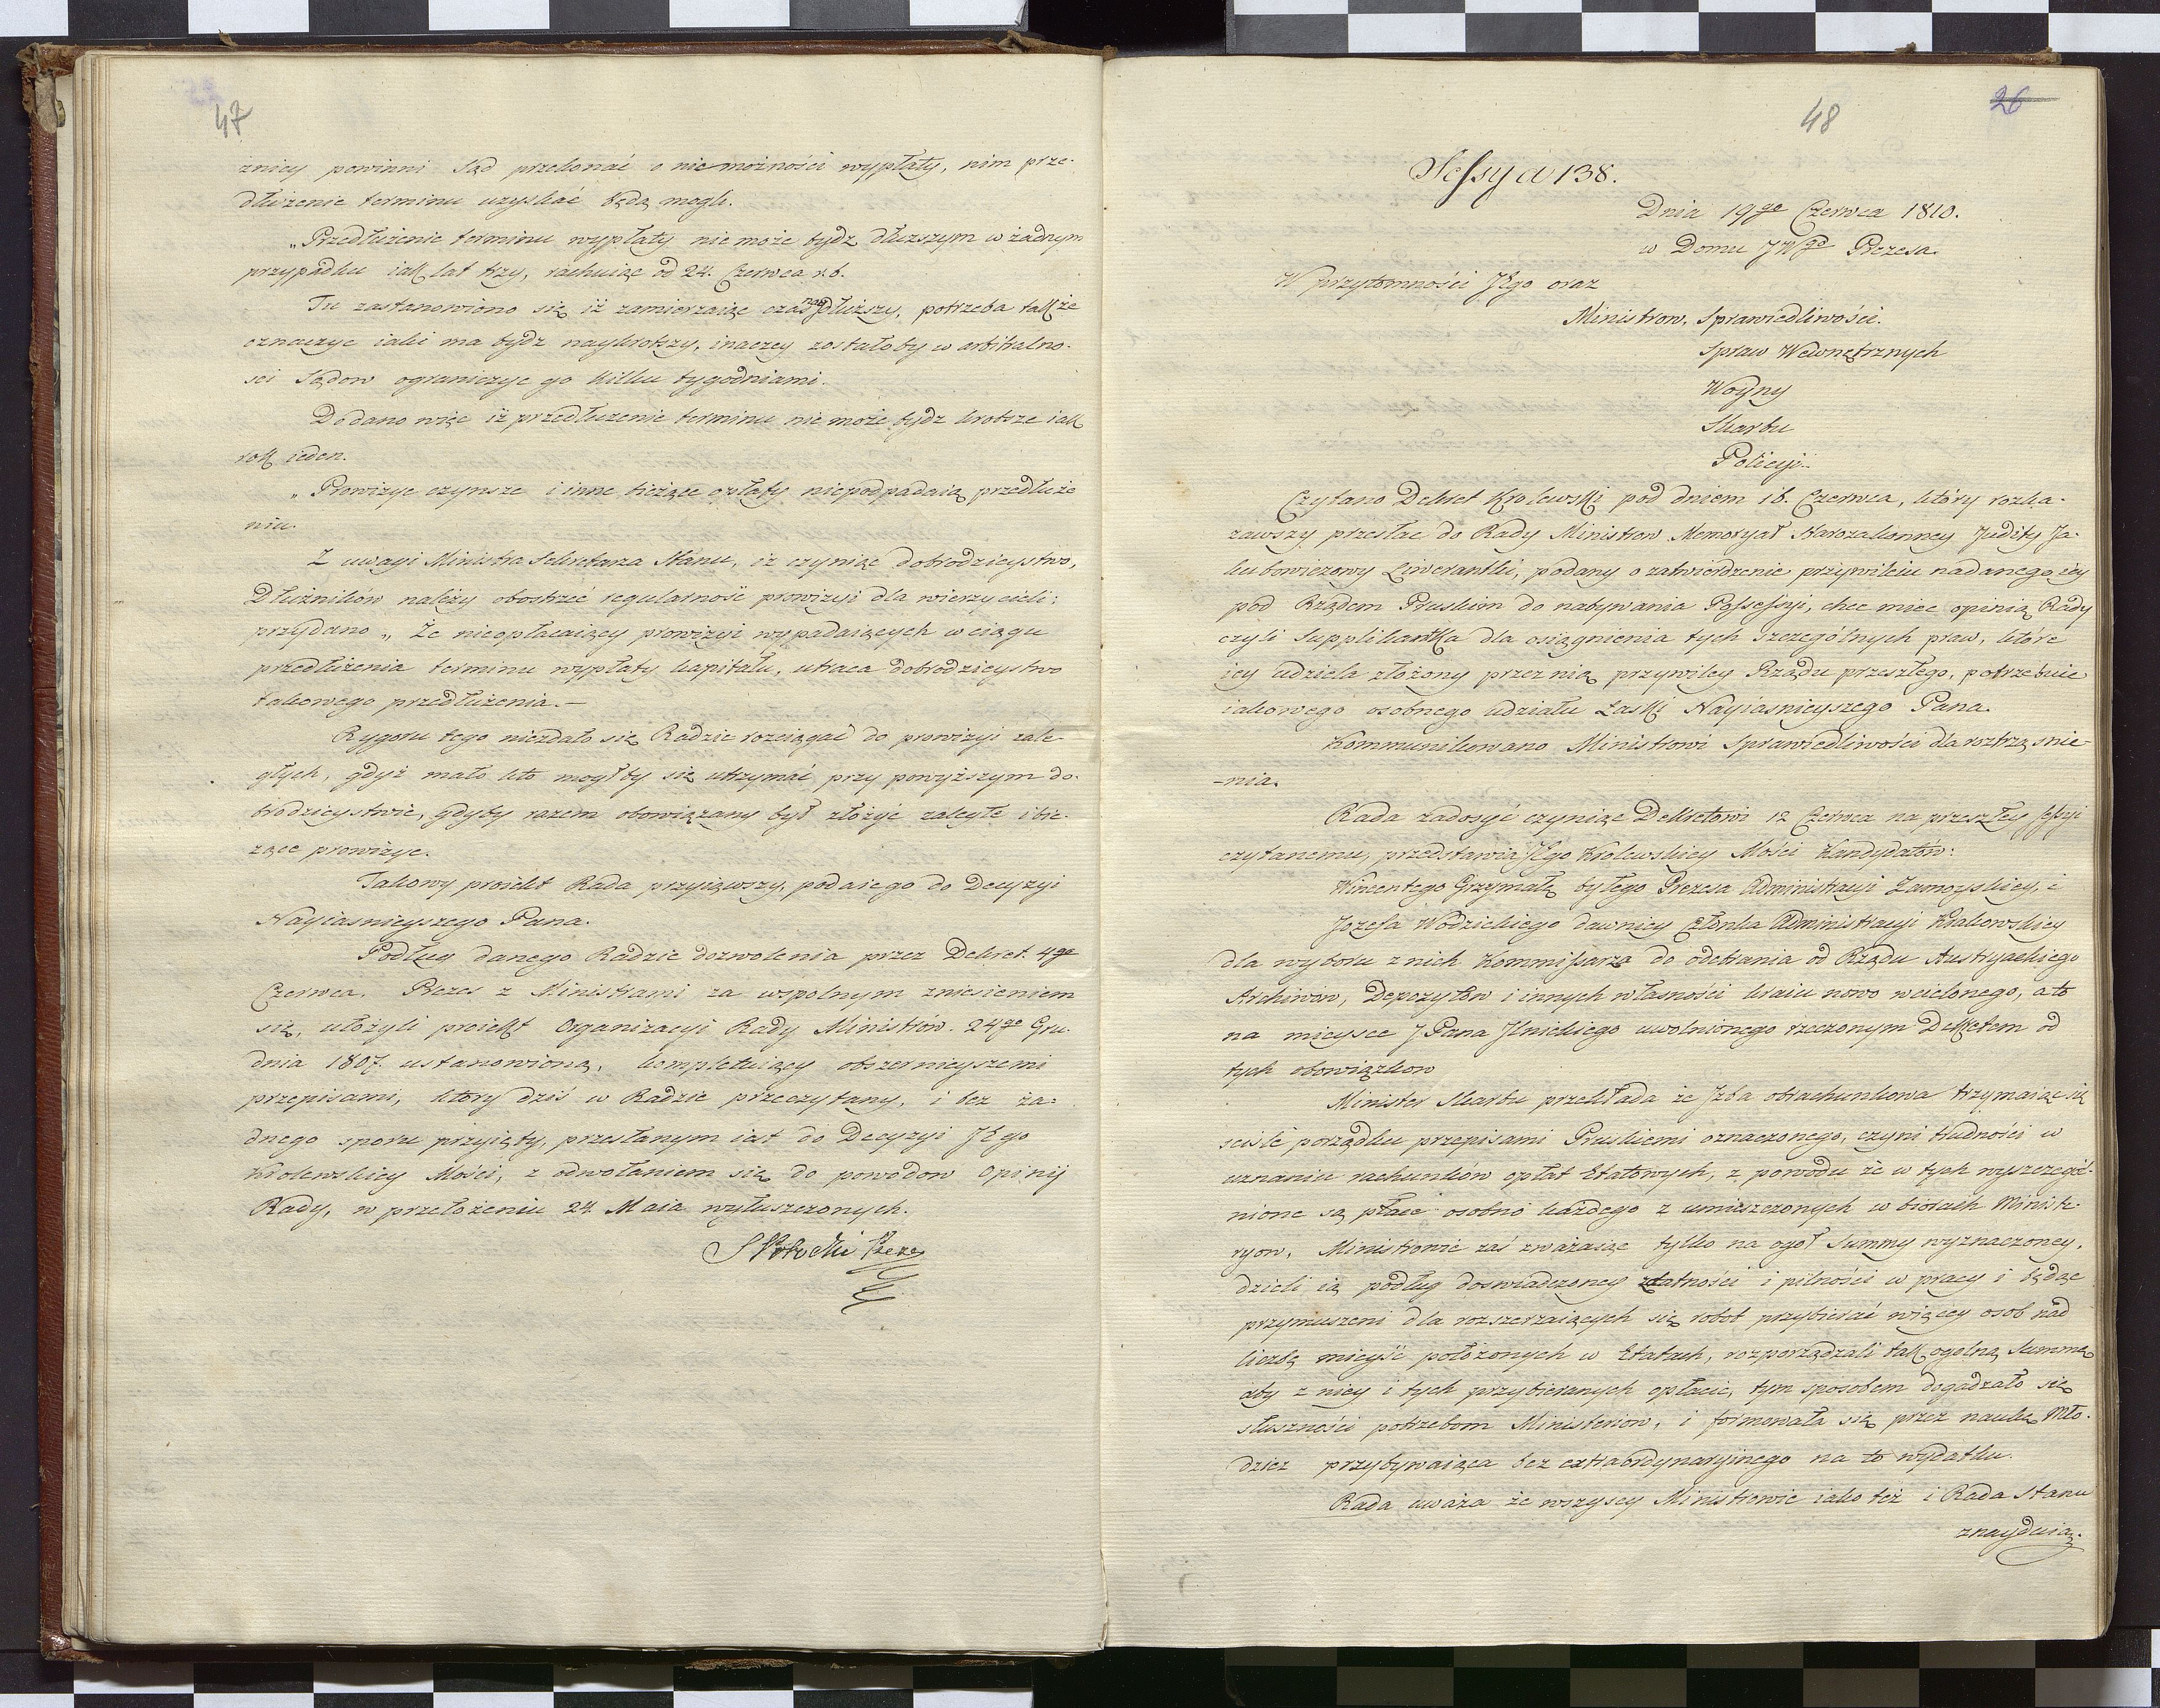 47
żnicy powinni Sąd przekonać o niemożności wypłaty, nim prze-
dłużenie terminu uzyskać będą mogli.
„Przedłużenie terminu wypłaty nie może bydz dłuższym w żadnym
przypadku iak lat trzy, rachuiąc od 24. Czerwca r. b.
Tu zastanowiono się iż zamierzaiąc czas naydłuższy, potrzeba także
oznaczyć iaki ma bydz naykrotszy, inaczey zostałoby w arbitralno-
sci Sądow ograniczyc go kilku tygodniami.
Dodano więc iż przedłużenie terminu nie może bydz krotsze iak
rok ieden.
„Prowizye czynsze i inne bieżące opłaty niepodpadaią przedłuże
niu.
Z uwagi Ministra Sekretarza Stanu, iż czyniąc dobrodzieystwo,
Dłużników należy obostrzyć regularność prowizyi dla wierzycieli;
przydano „ Że nieopłacaiący prowizyi wypadaiących w ciągu
przedłużenia terminu wypłaty kapitału, utraca dobrodzieystwo
takowego przedłużenia.—
Rygoru tego niezdało się Radzie rozciągać do prowizyi zale
głych, gdyż mało kto mogłby się utrzymać przy powyższym do-
brodzieystwie, gdyby razem obowiązany był złożyć zaległe i bie-
zące prowizye.
Takowy proiekt Rada przyiąwszy, podaie go do Decyzyi
Nayiasnieyszego Pana.
Podług danego Radzie dozwolenia przez Dekret 4go
Czerwca. Prezes z Ministrami za wspolnym zniesieniem
się, ułożyli proiekt Organizacyi Rady Ministrów. 24go Gru-
dnia 1807. ustanowioną, kompletuiący obszernieyszemi
przepisami, ktory dziś w Radzie przeczytany, i bez ża-
dnego sporu przyięty, przesłanym iest do Decyzyi JEgo
Krolewskiey Mości, z odwołaniem się do powodow Opinij
Rady, w przełożeniu 24. Maia wyłuszczonych.
S Potocki Prezes
48
26
Sessya 138.
Dnia 19go Czerwca 1810.
w Domu JWgo Prezesa.
W przytomności JEgo oraz
Ministrow, Sprawiedliwości.
Spraw Wewnętrznych
Woyny
Skarbu
Policyi.
Czytano Dekret Krolewski pod dniem 16. Czerwca, który rozka-
zawszy przesłac do Rady Ministrow Memoryał Starozakonney Judity Ja-
kubowiczowy Liwerantki, podany o zatwierdzenie przywileiu nadanego iey
pod Rządem Pruskim do nabywania Possessyi, chce miec opinią Rady
czyli Supplikantka dla osiągnienia tych szczególnych praw, które
iey udziela złożony przez nią przywiley Rządu przeszłego, potrzebuie
iakowego osobnego udziału Łaski Nayiasnieyszego Pana.
Kommunikowano Ministrowi Sprawiedliwości dla roztrząsnie-
-nia.
Rada zadosyć czyniąc Dekretowi 12 Czerwca na przeszłey Sessyi
czytanemu, przedstawia JEgo Krolewskiey Mości Kandydatów:
Wincentego Grzymałę byłego Prezesa Administracyi Zamoyskiey, i
Jozefa Wodzickiego dawniey Członka Administracyi Krakowskiey
dla wyboru z nich Kommissarza do odebrania od Rządu Austryackiego
Archiwów, Depozytow i innych własności kraiu nowo wcielonego, a to
na mieysce J Pana Ilnickiego uwolnionego rzeczonym Dekretem od
tych obowiązkow
Minister Skarbu przekłada że Izba obrachunkowa trzymaiąc się
sciśle porządku przepisami Pruskiemi oznaczonego, czyni trudności w
uznaniu rachunków opłat Etatowych, z powodu że w tych wyszczegól-
nione są płace osobno każdego z umieszczonych w biorach Ministe-
ryow. Ministrowie zaś zważaiąc tylko na ogół Summy wyznaczoney,
dzieli ią podług doswiadczoney zdatności i pilności w pracy i będąc
przymuszeni dla rozszerzaiących się robot przybierać więcey osob nad
liczbę mieysc położonych w Etatach, rozporządzali tak ogolną Summą
aby z niey i tych przybieranych opłacic, tym sposobem dogadzało się
słuszności potrzebom Ministeriow, i formowała się przez naukę Mło-
dziez przybywaiąca bez extraordynaryinego na to wydatku.
Rada uważa że wszyscy Ministrowie iako też i Rada Stanu
znayduią.